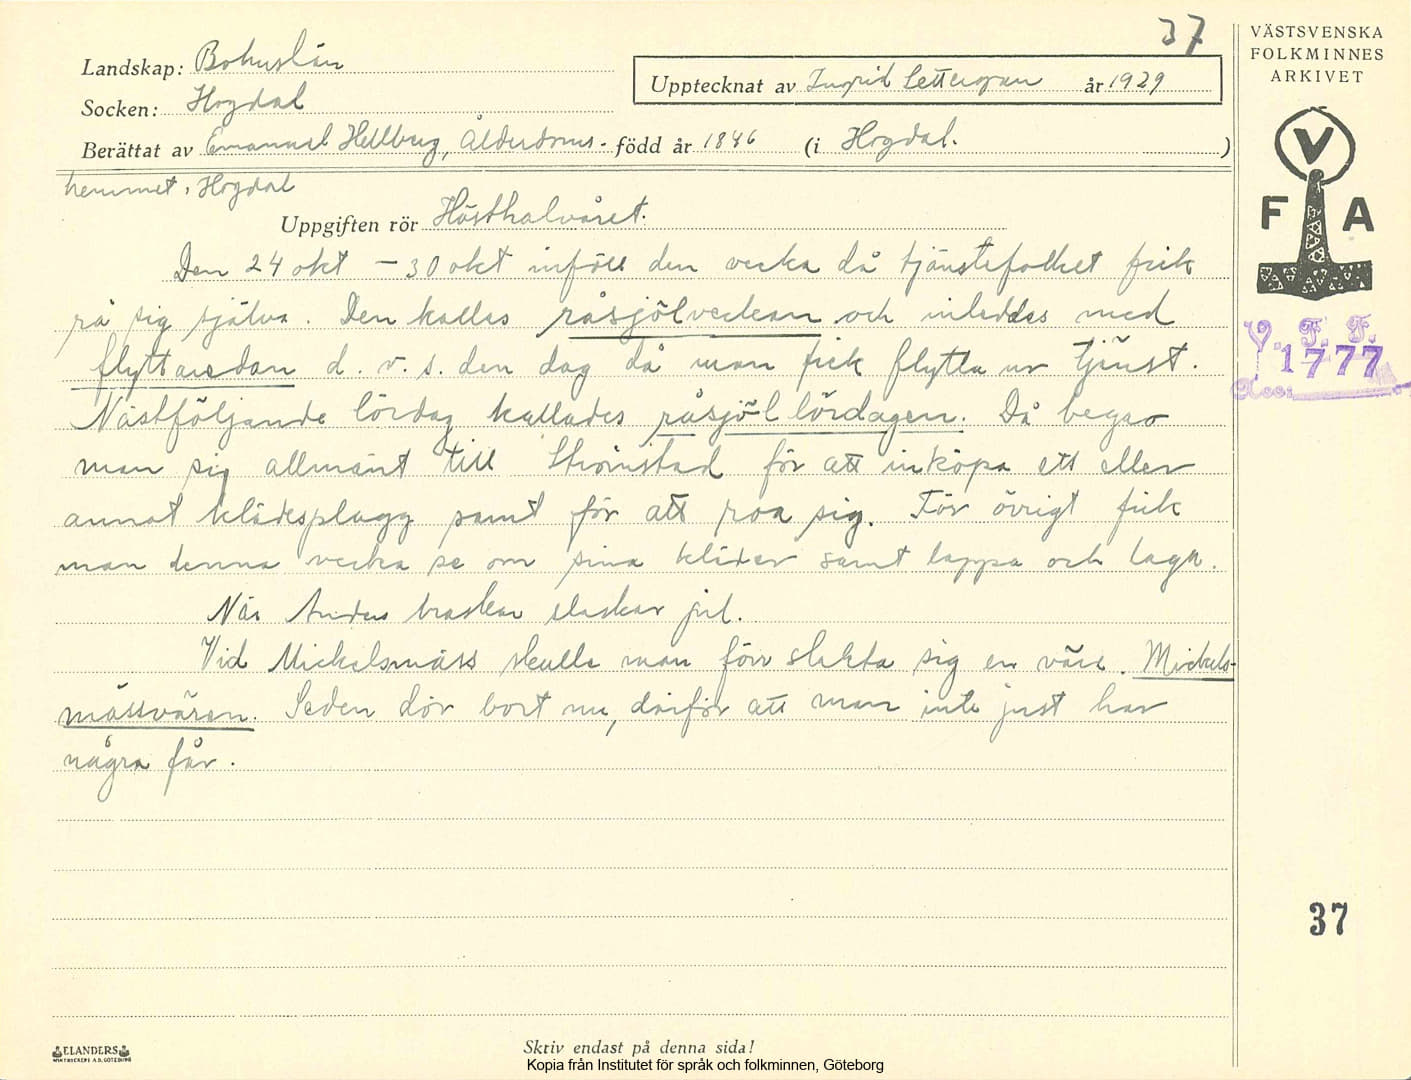 37
VÄSTSVENSKA
FOLKMINNES
ARKIVET
Landskap: Bohuslän
Upptecknat av Ingrid år 1929
Socken: Hogdal
Berättat av Emanuel Hellberg, Ålderdoms- född år 1846 (i Hogdal. )
hemmet, Hogdal
V
F A
Uppgiften rör Hösthalvåret.
Den 24 okt – 30 okt inföll den vecka då tjänstefolket fick
rå sig själva. Den kallas råsjölveckan och inleddes med
flyttaredan d. v. s. den dag då man fick flytta ur tjänst.
Nästföljande lördag kallades råsjöl lördagen. Då begav
man sig allmänt till Strömstad för att inköpa ett eller
annat klädesplagg samt för att roa sig. För övrigt fick
man denna vecka se om sina kläder samt lappa och laga.
När Anders braskar slaskar jul.
Vid Mickelsmäss skulle man förr slakta sig en väre. Mickels-
mässvären. Seden dör bort nu, därför att man inte just har
några får.
V. F. F.
1777
Acc:
37
ELANDERS
BOKTRYCKERI A.B. GÖTEBORG
Skriv endast på denna sida!
Kopia från Institutet för språk och folkminnen, Göteborg